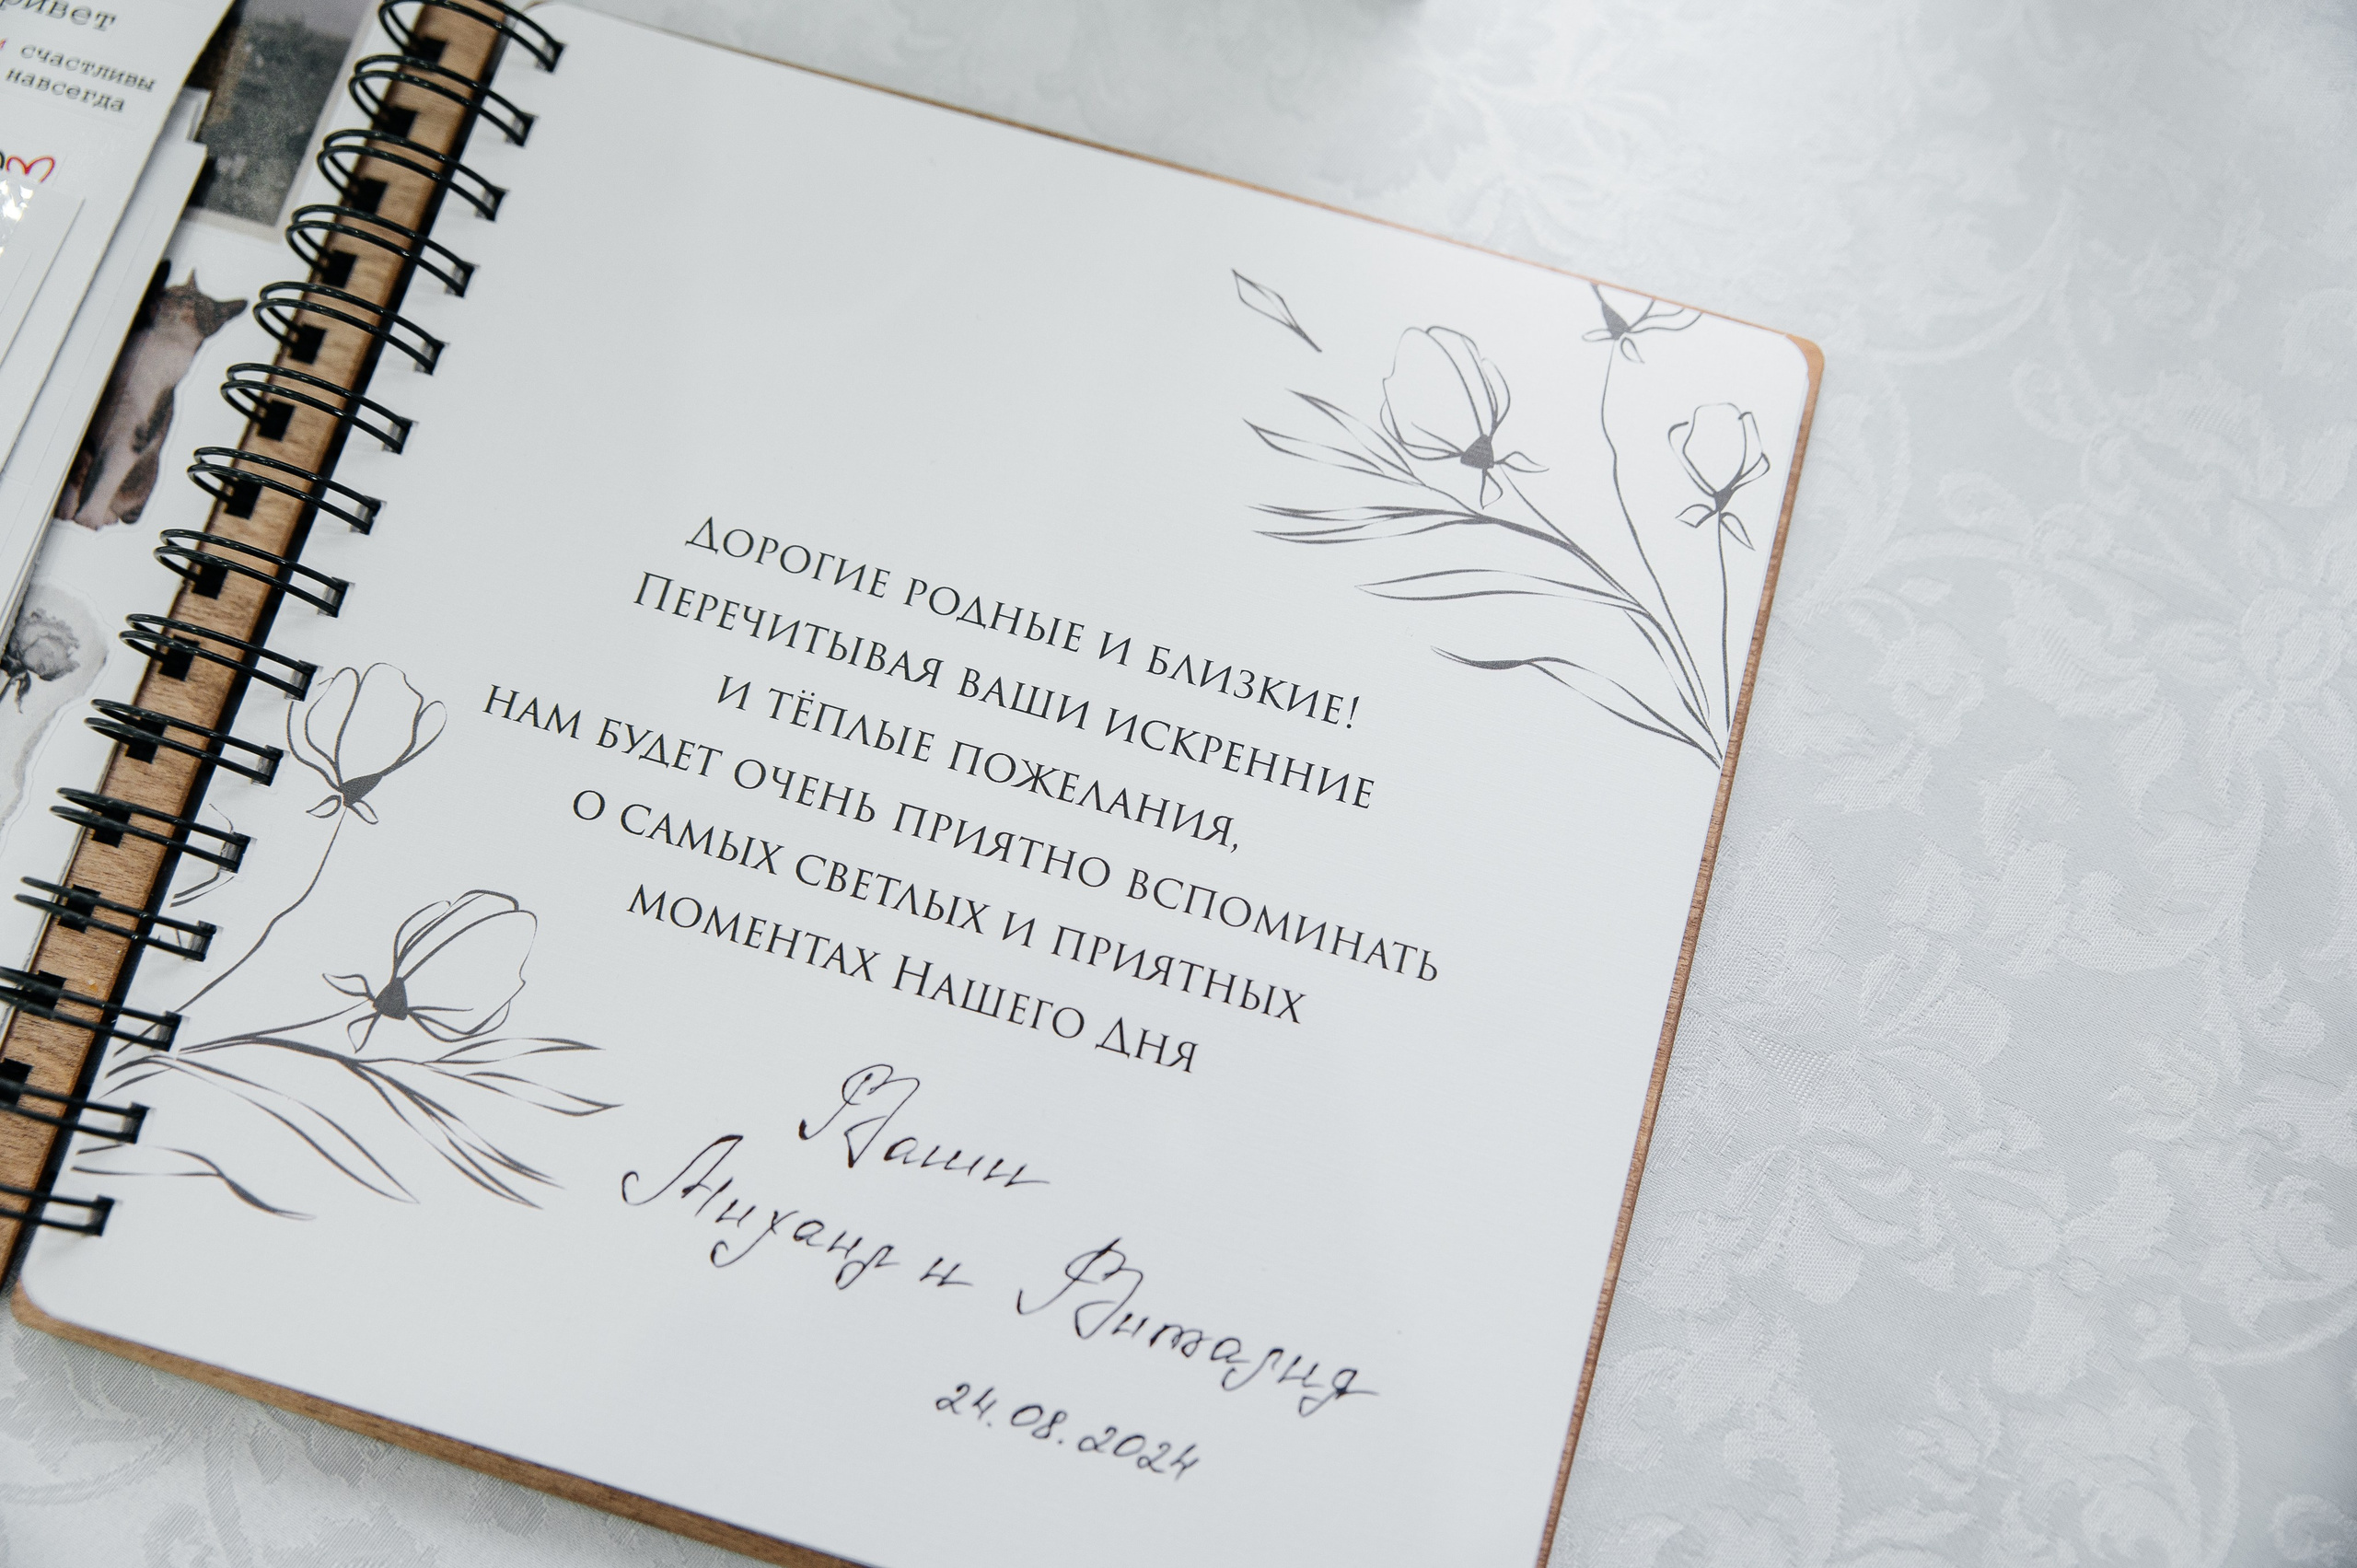 привет
счастливы
навсегда
ДОРОГИЕ РОДНЫЕ И БЛИЗКИЕ!
ПЕРЕЧИТЫВАЯ ВАШИ ИСКРЕННИЕ
И ТЁПЛЫЕ ПОЖЕЛАНИЯ,
НАМ БУДЕТ ОЧЕНЬ ПРИЯТНО ВСПОМИНАТЬ
О САМЫХ СВЕТЛЫХ И ПРИЯТНЫХ
МОМЕНТАХ НАШЕГО ДНЯ
Ваши
Михаил и Виталия
24.08.2024